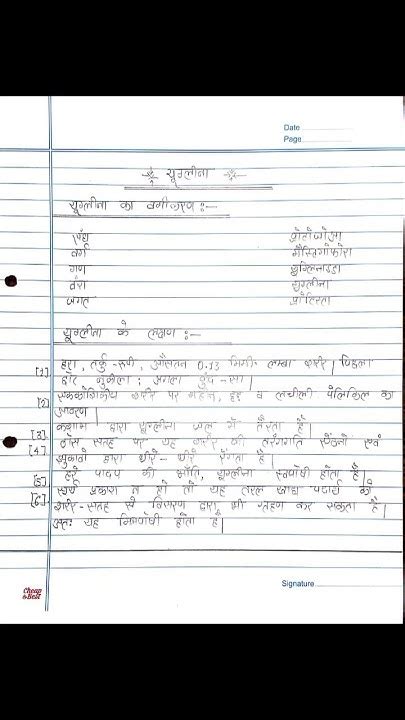 Date
Page
यूग्लीना
यूग्लीना का वर्गीकरण :-
संघ प्रोटोजोआ
वर्ग मैस्टिगोफोरा
गण युग्लिनाइडा
वंश युग्लीना
जगत प्रोटिस्टा
यूग्लीना के लक्षण :-
[1] हरा, तर्कु-रूपी, औसतन 0.13 मिमी. लम्बा शरीर | पिछला
छोर नुकीला ; अगला |
[2] एककोशिकीय शरीर पर महीन, दृढ़ व लचीली पेलिकिल का
आवरण |
[3] कशाभ द्वारा यूग्लीना जल में तैरता है |
[4] ठोस सतह पर यह शरीर की तरंगगति एवं
झुकावों द्वारा धीरे-धीरे रेंगता है |
[5] हरे पादप की भाँति, यूग्लीना स्वपोषी होता है |
[6] सूर्य प्रकाश न हो तो यह तरल खाद्य पदार्थ को
शरीर-सतह से विसरण द्वारा भी ग्रहण कर सकता है |
अतः यह मिश्रपोषी होता है |
Signature
Cheap
&Best